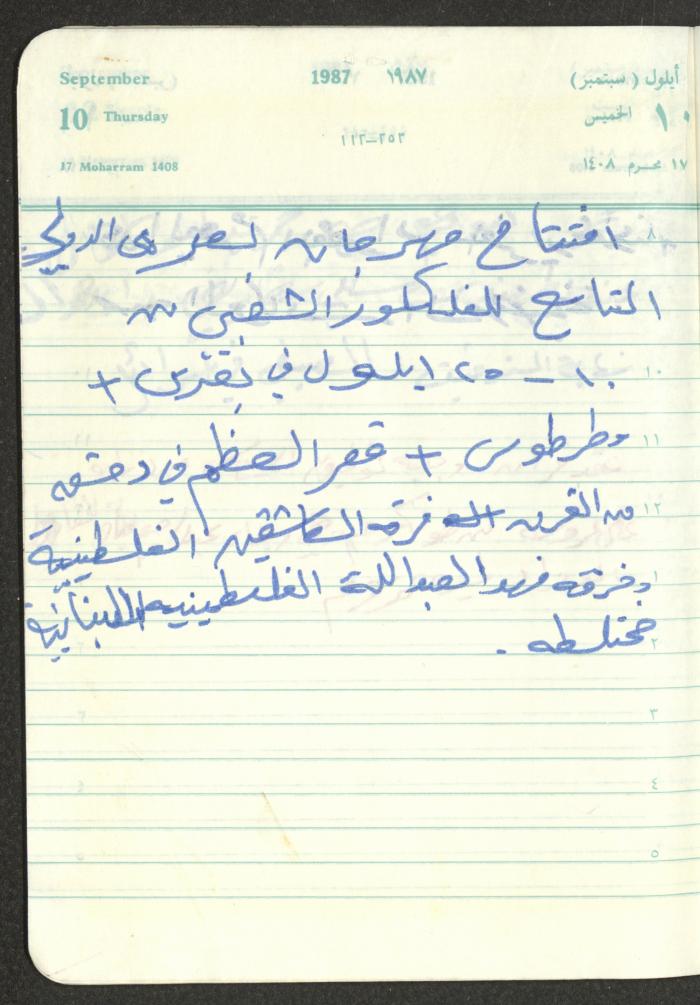 September 1987 ١٩٨٧ أيلول ( سبتمبر )
10 Thursday الخميس ١٠
٢٥٣ــ١١٢
17 Moharram 1408 ١٧ محرم ١٤٠٨
٨ افتتاح مهرجان بصرى الدولي
التاسع للفلكلور الشعبي من
١٠ ١٠ – ٢٥ ايلول في +
١١ وطرطوس + قصر العظم في دمشق
١٢ من الفرق فرقة العاشقين الفلسطينية
١ وفرقة فهد العبدالله الفلسطينيه اللبنانية
٢ مختلطه .
٣
٤
٥